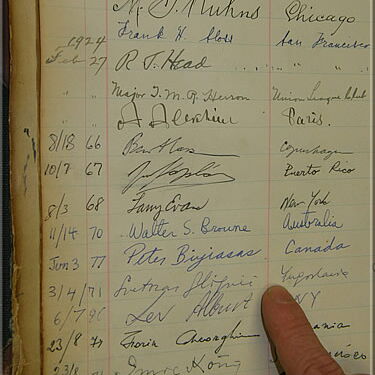 Chicago
1924 Frank H. Sloss San Francisco
Feb 27 R J. Head " " "
" " Major I. M. R. Herron Union League Club
A Alekhine Paris.
8/18 66 Bent Larsen Copenhagen
10/7 67 Puerto Rico
8/3 68 Larry Evans New York
11/14 70 Walter S. Browne Australia
Jun 3 77 Peter Biyiasas Canada
3/4/71 Svetozar Gligorić Yugoslavia
6/7/90 Lev Alburt NY
23/8 79 Florin Gheorghiu
23/8